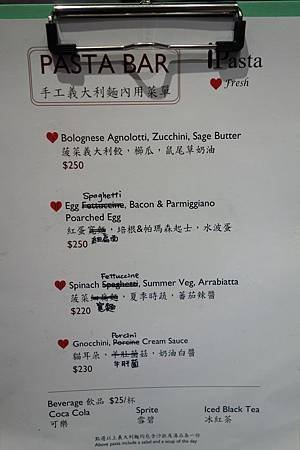 PASTA BAR
手工義大利麵內用菜單
iPasta
Fresh
Bolognese Agnolotti, Zucchini, Sage Butter
菠菜義大利餃，櫛瓜，鼠尾草奶油
$250
Spaghetti
Egg Fettuccine, Bacon & Parmiggiano
Poarched Egg
紅蛋寬麵，培根&帕瑪森起士，水波蛋
$250
Fettuccine
Spinach Spaghetti, Summer Veg, Arrabiatta
菠菜，夏季時蔬，蕃茄辣醬
$220 寬麵
Porcini
Gnocchini, Porcine Cream Sauce
貓耳朵，羊肚菌菇，奶油白醬
$230 牛肝菌
Beverage 飲品 $25/杯
Coca Cola Sprite Iced Black Tea
可樂 雪碧 冰紅茶
點選以上義大利麵均包含沙拉及湯品各一份
Above pasta include a salad and a soup of the day